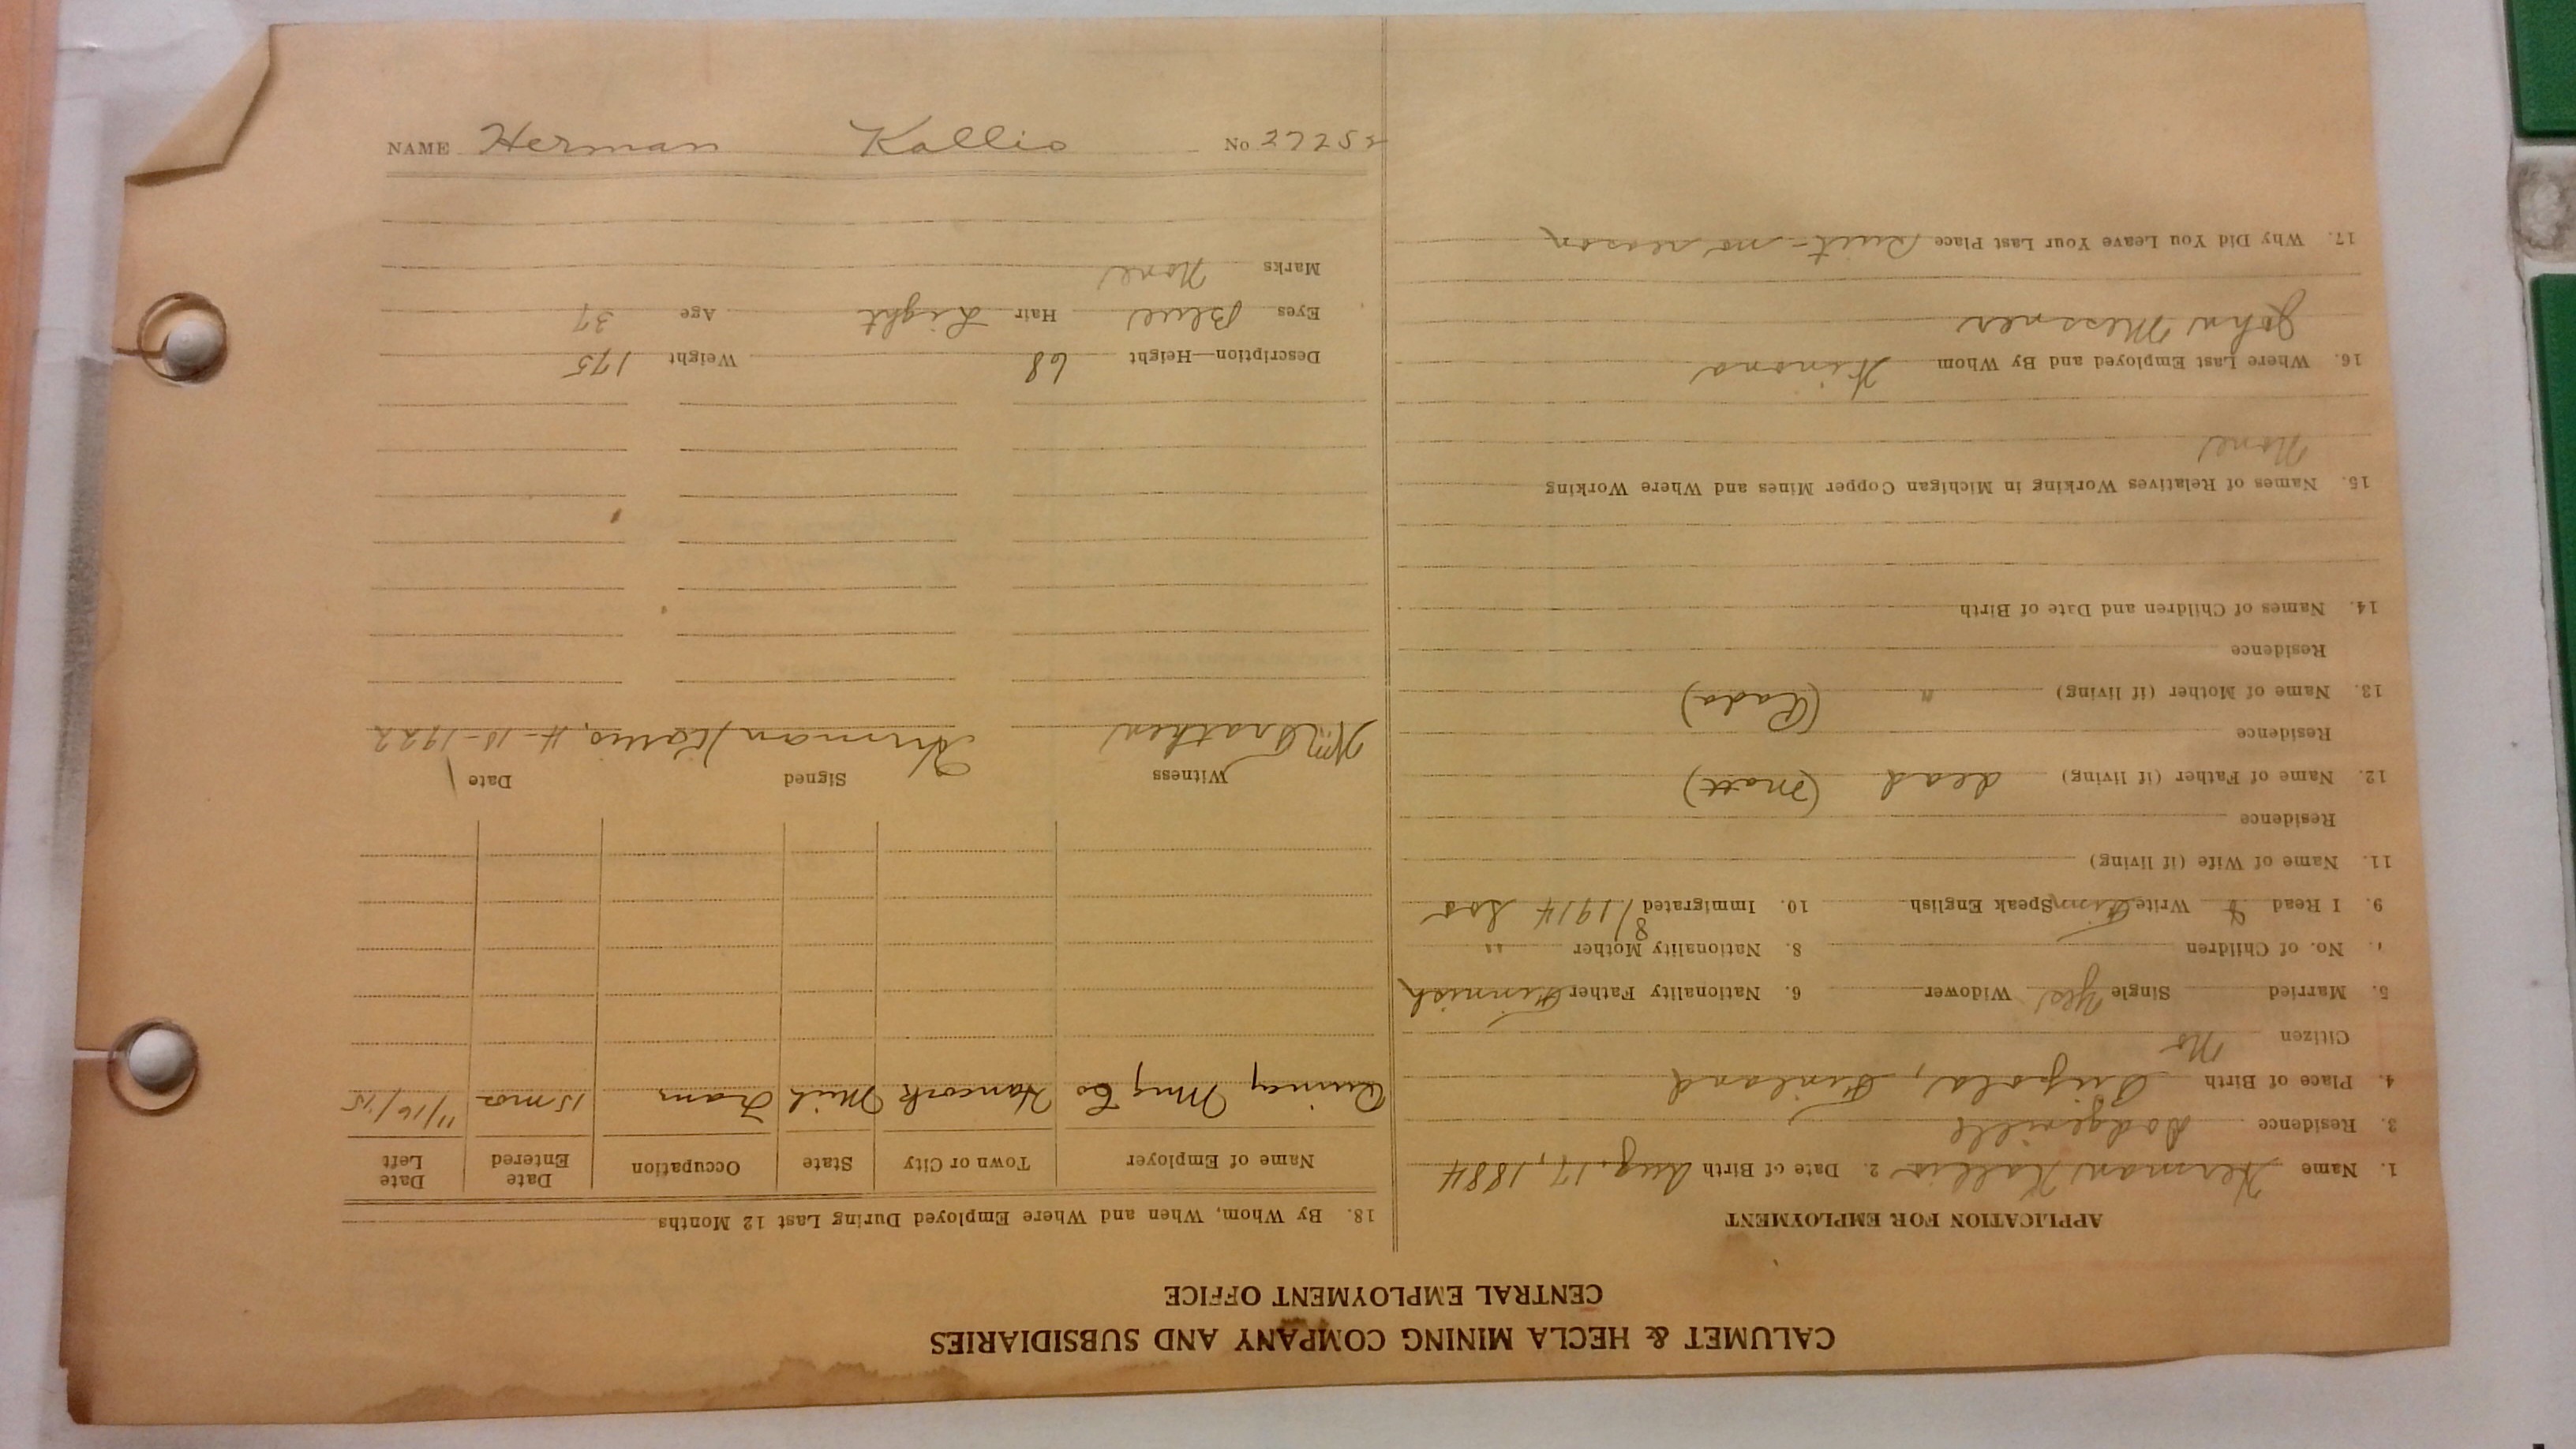 CALUMET & HECLA MINING COMPANY AND SUBSIDIARIES
CENTRAL EMPLOYMENT OFFICE
APPLICATION FOR EMPLOYMENT
1. Name Herman Kallio 2. Date of Birth Aug. 17, 1884
3. Residence Dodgeville
4. Place of Birth Finland
Citizen No
5. Married Single Yes Widower 6. Nationality Father Finnish
No. of Children 8. Nationality Mother "
9. I Read & Write Finn Speak English 10. Immigrated 8/1914
11. Name of Wife (if living)
Residence
12. Name of Father (if living) dead (Matt)
Residence
13. Name of Mother (if living) "
Residence
14. Names of Children and Date of Birth
15. Names of Relatives Working in Michigan Copper Mines and Where Working
None
16. Where Last Employed and By Whom Winona
John Messner
17. Why Did You Leave Your Last Place Quit - no reason
18. By Whom, When and Where Employed During Last 12 Months
Name of Employer Town or City State Occupation Date Entered Date Left
Quincy Mng Co Hancock Mich Tram 15 mos 11/16/15
Witness Signed Date
Herman Kallio, 4-18-1922
Description—Height 68 Weight 175
Eyes Blue Hair Light Age 37
Marks None
NAME Herman Kallio No 27252